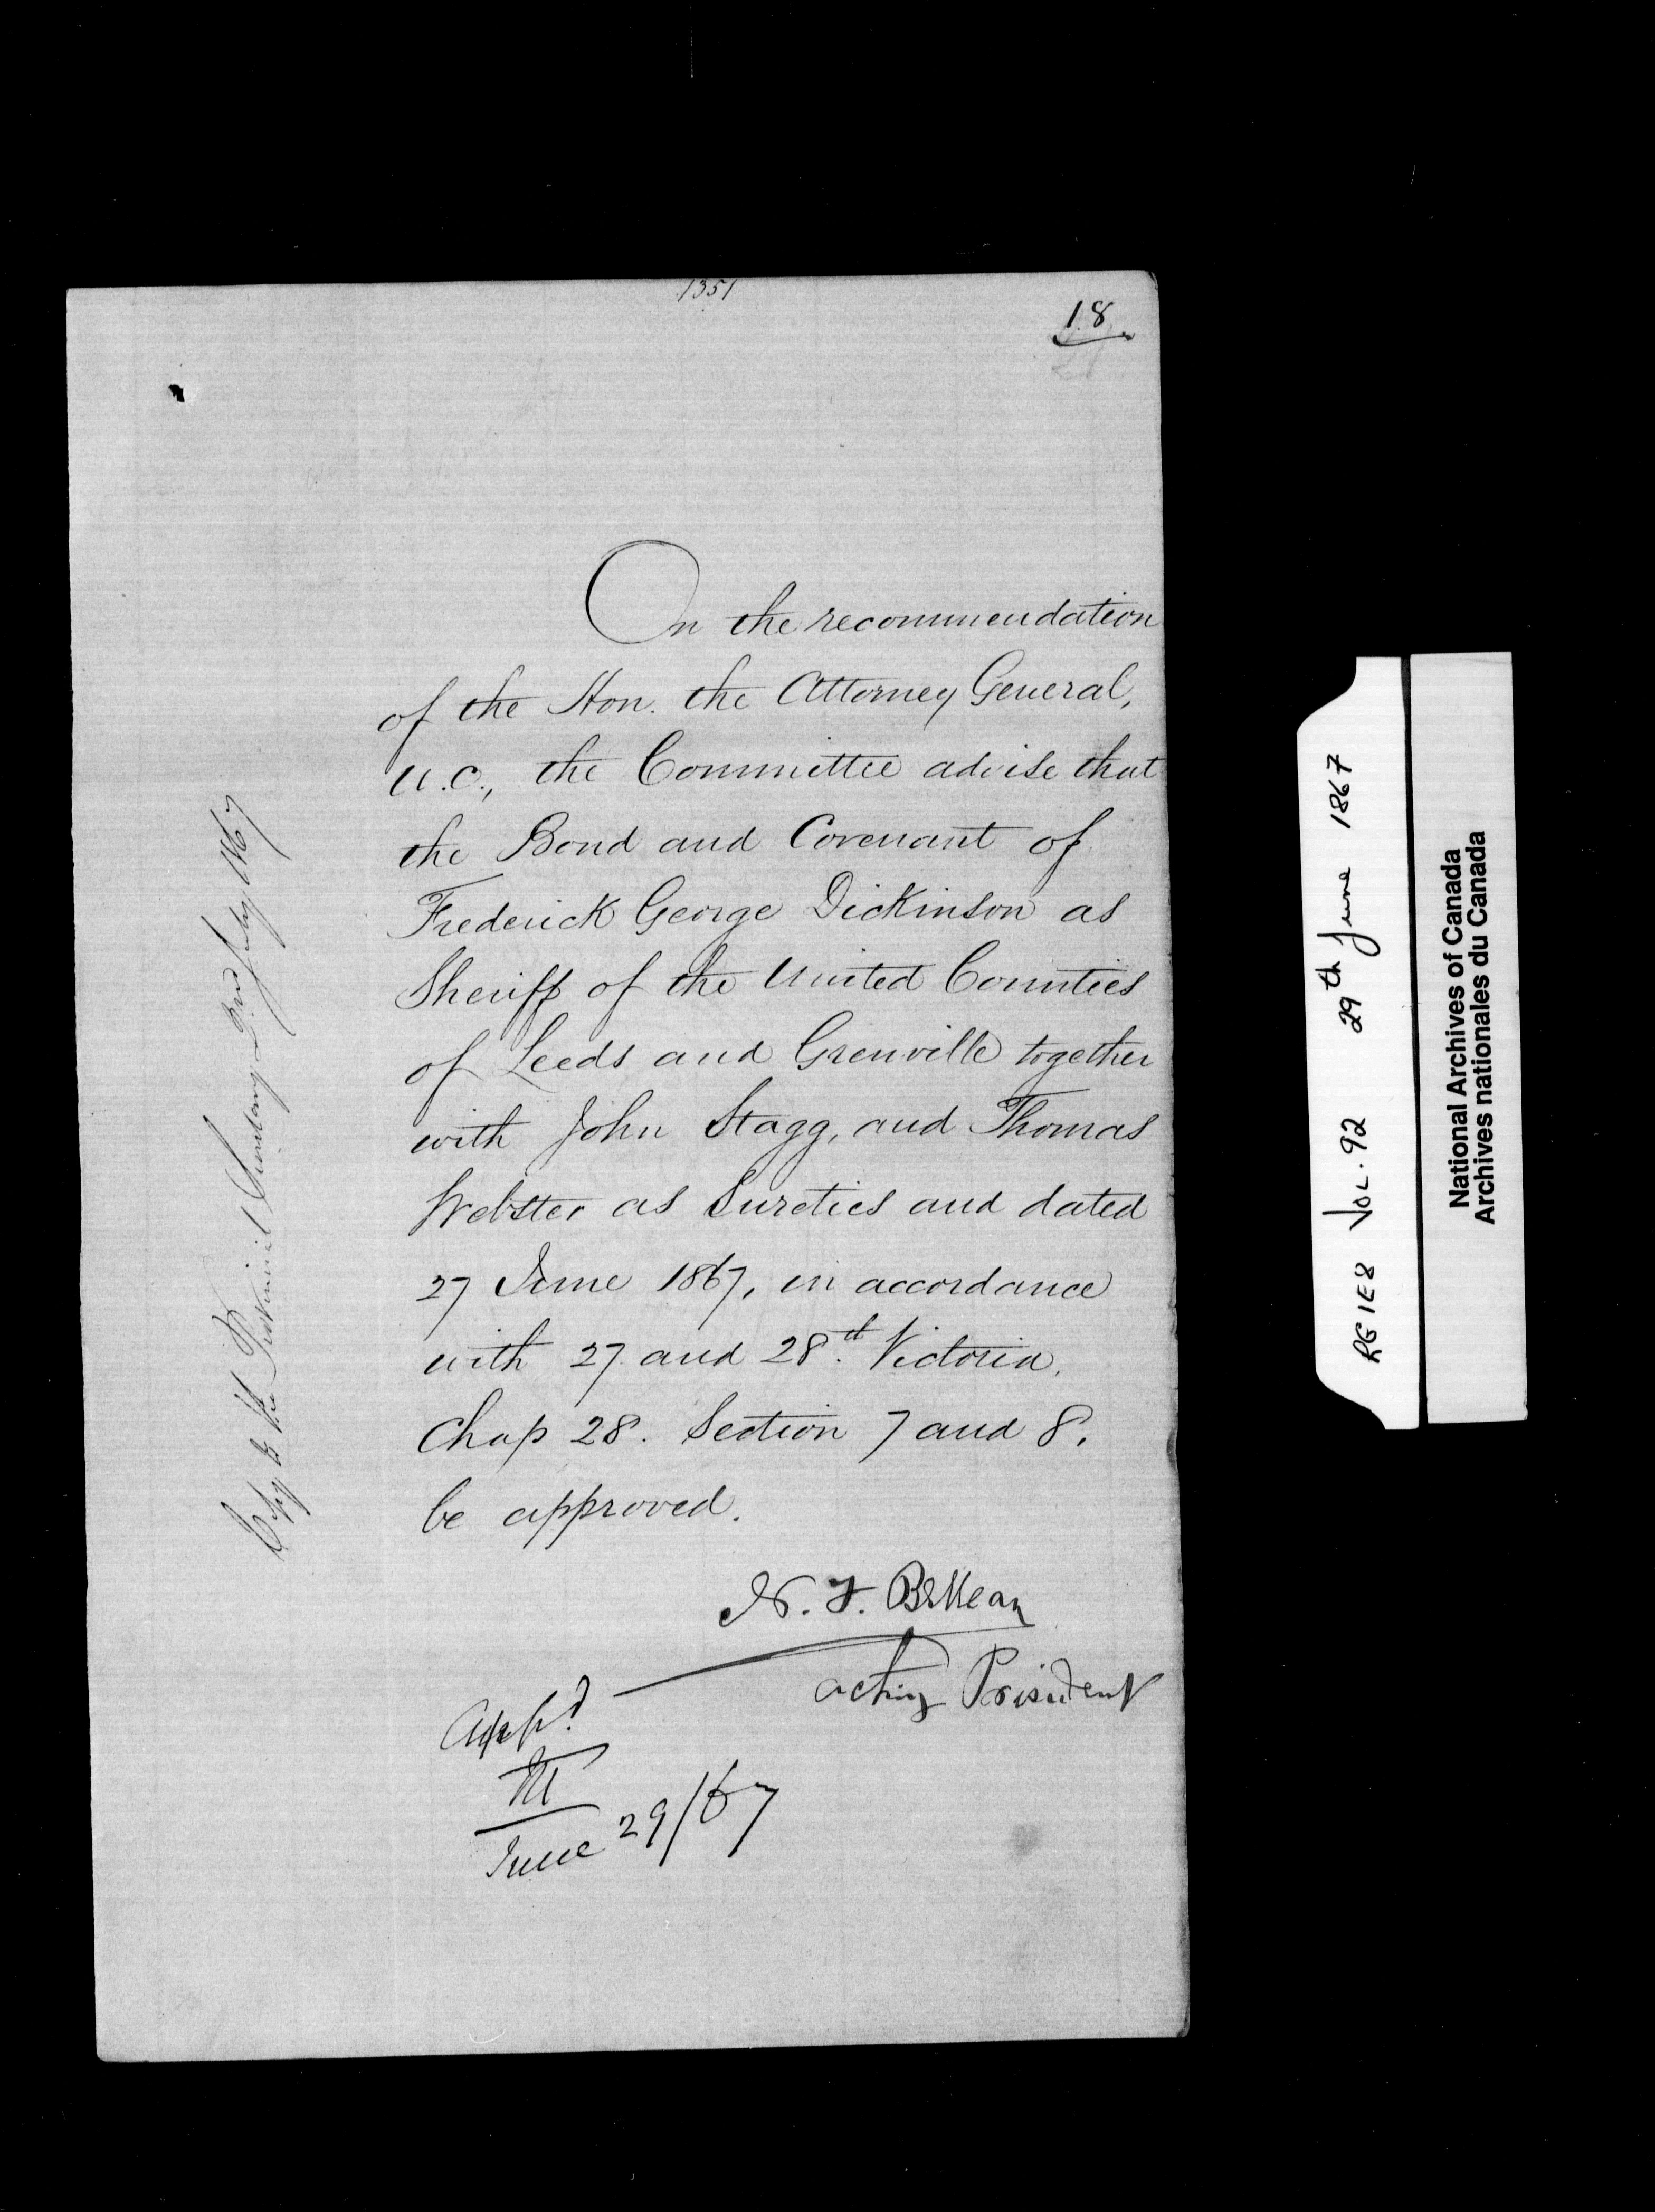 1351
18
On the recommendation
of the Hon. the Attorney General,
U.C., the Committee advise that
the Bond and Covenant of
Frederick George Dickinson as
Sheriff of the United Counties
of Leeds and Grenville together
with John Stagg, and Thomas
Webster as Sureties and dated
27 June 1867, in accordance
with 27 and 28th Victoria,
Chap 28. Section 7 and 8,
be approved.
N. F. Belleau
acting President
Appd
M
June 29/67
Copy to the Provincial Secretary 2nd July 1867
RG 1E8 VOL. 92 29th June 1867
National Archives of Canada
Archives nationales du Canada